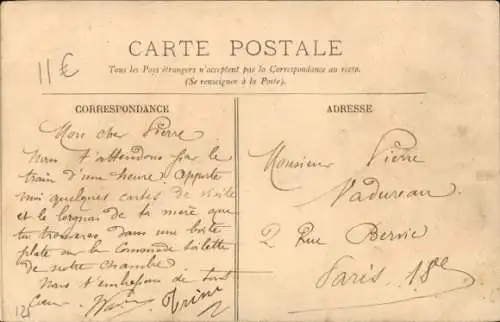 11€
CARTE POSTALE
Tous les Pays étrangers n'acceptent pas la Correspondance au recto.
(Se renseigner à la Poste).
CORRESPONDANCE
Mon cher Pierre
Nous t'attendons par le
train d'une heure. Apporte
moi quelques cartes de visite
et le lorgnon de ta mère que
tu trouveras dans une boite
plate sur la commode toilette
de notre chambre.
Nous t'embrassons de tout
cœur.
125
ADRESSE
Monsieur Pierre
Vadureau
2 Rue Bervic
Paris 18e